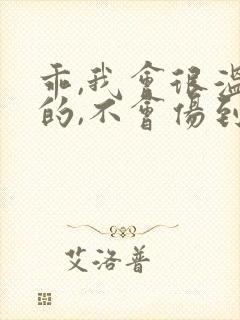 乖,我會很溫
的,不會傷到
艾洛普